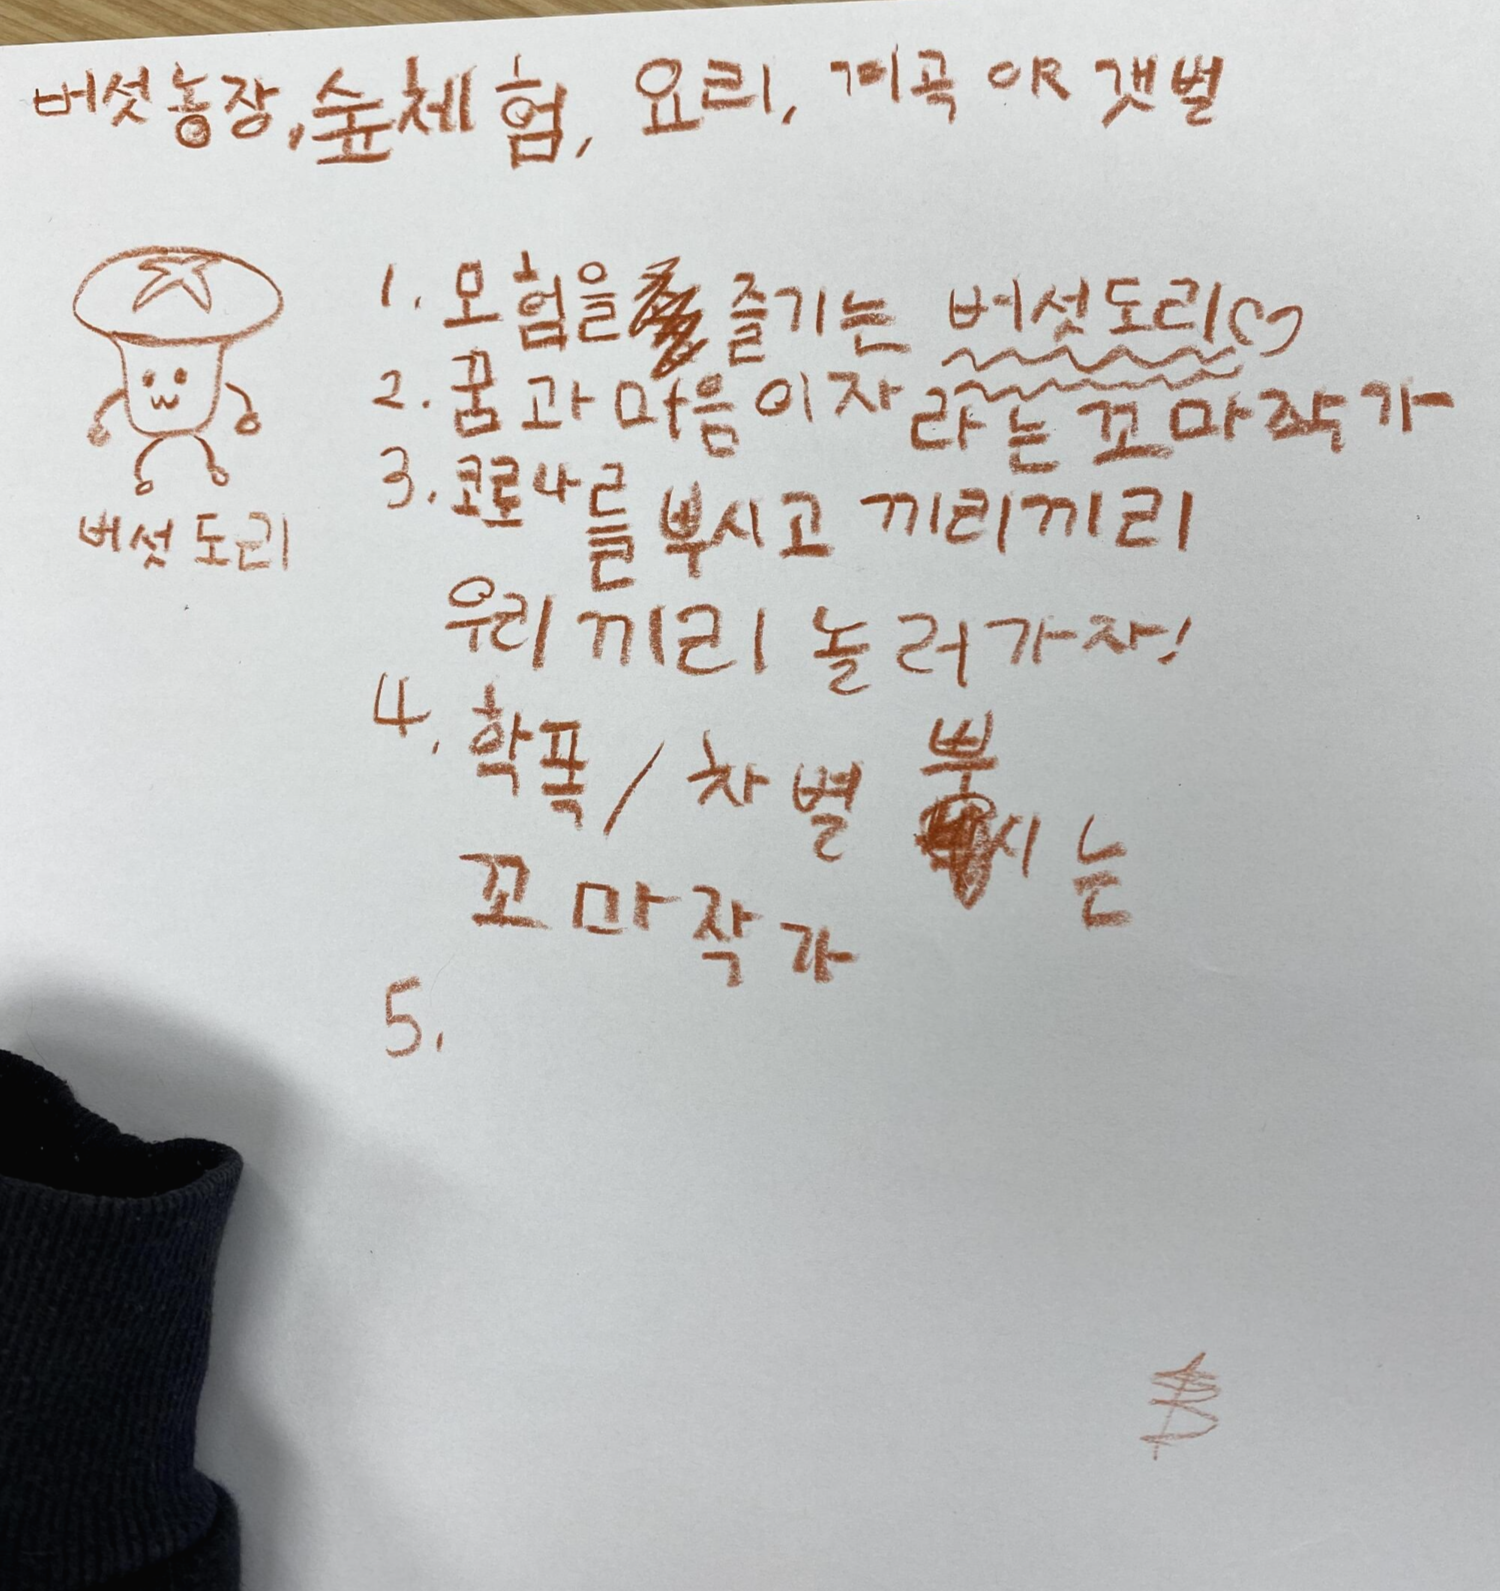 버섯농장, 숲체험, 요리, 계곡 OR 갯벌
1. 모험을 즐기는 버섯도리♡
2. 꿈과 마음이 자라는 꼬마작가
3. 코로나를 뿌시고 끼리끼리
우리끼리 놀러가자!
4. 학폭/차별 뿌시는
꼬마작가
5.
버섯도리